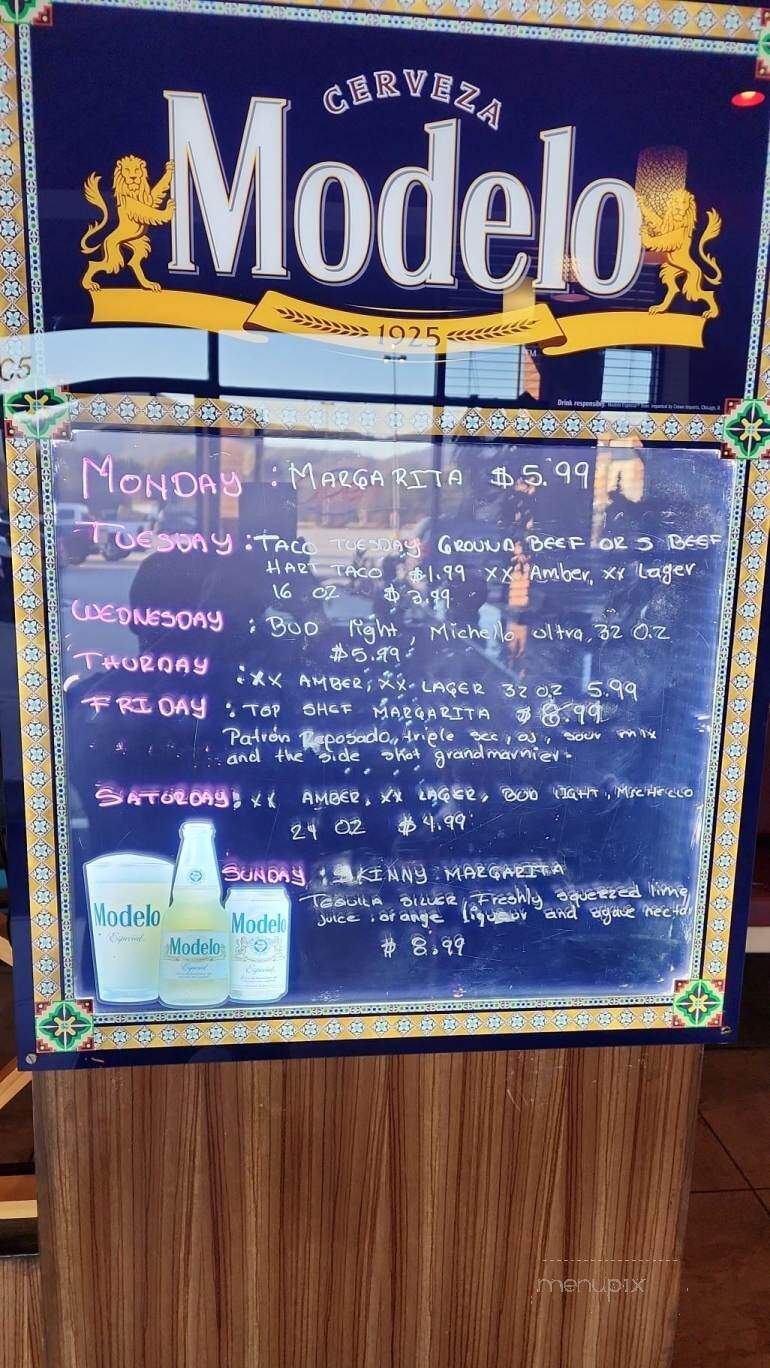 CERVEZA
Modelo
1925
TM
C5
Drink responsibly.
MONDAY : MARGARITA $5.99
TUESDAY : TACO TUESDAY GROUND BEEF OR S BEEF
HART TACO $1.99 XX Amber, XX Lager
16 OZ $3.99
WEDNESDAY : BUD light, Michello ultra, 32 O.Z
$5.99
THURDAY : XX AMBER, XX LAGER 32 OZ 5.99
FRIDAY : TOP SHEF MARGARITA $8.99
Patrón Reposado, triple sec, oj, sour mix
and the side shot grandmarnier.
SATURDAY: XX AMBER, XX LAGER, BUD LIGHT, MICHELLO
24 OZ $4.99
SUNDAY : SKINNY MARGARITA
TEQUILA SILVER, Freshly squeezed lime
juice, orange liqueur and agave nectar
$ 8.99
Modelo
Especial
Modelo
Especial
Modelo
Especial
menupix